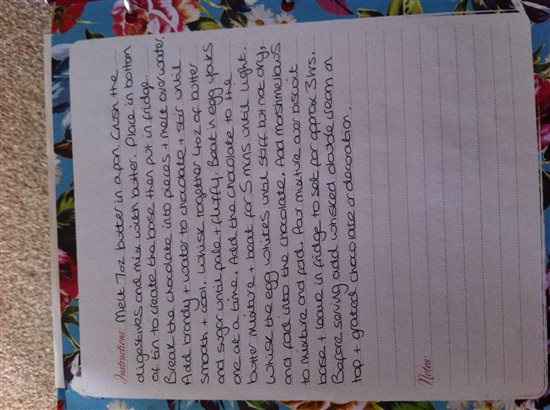 Instructions: Melt 7oz butter in a pan. Crush the
digestives and mix with butter. Place in bottom
of tin to create the base then put in fridge.
Break the chocolate into pieces + melt over water.
Add brandy + water to chocolate + stir until
smooth + cool. Whisk together 4oz of butter
and sugar until pale + fluffy. Beat in egg yolks
one at a time. Add the chocolate to the
butter mixture + beat for 5 mins until light.
Whisk the egg whites until stiff but not dry,
and fold into the chocolate. Add marshmallows
to mixture and fold. Pour mixture over biscuit
base + leave in fridge to set for approx 3 hrs.
Before serving add whisked double cream on
top + grated chocolate or decoration.
Notes: